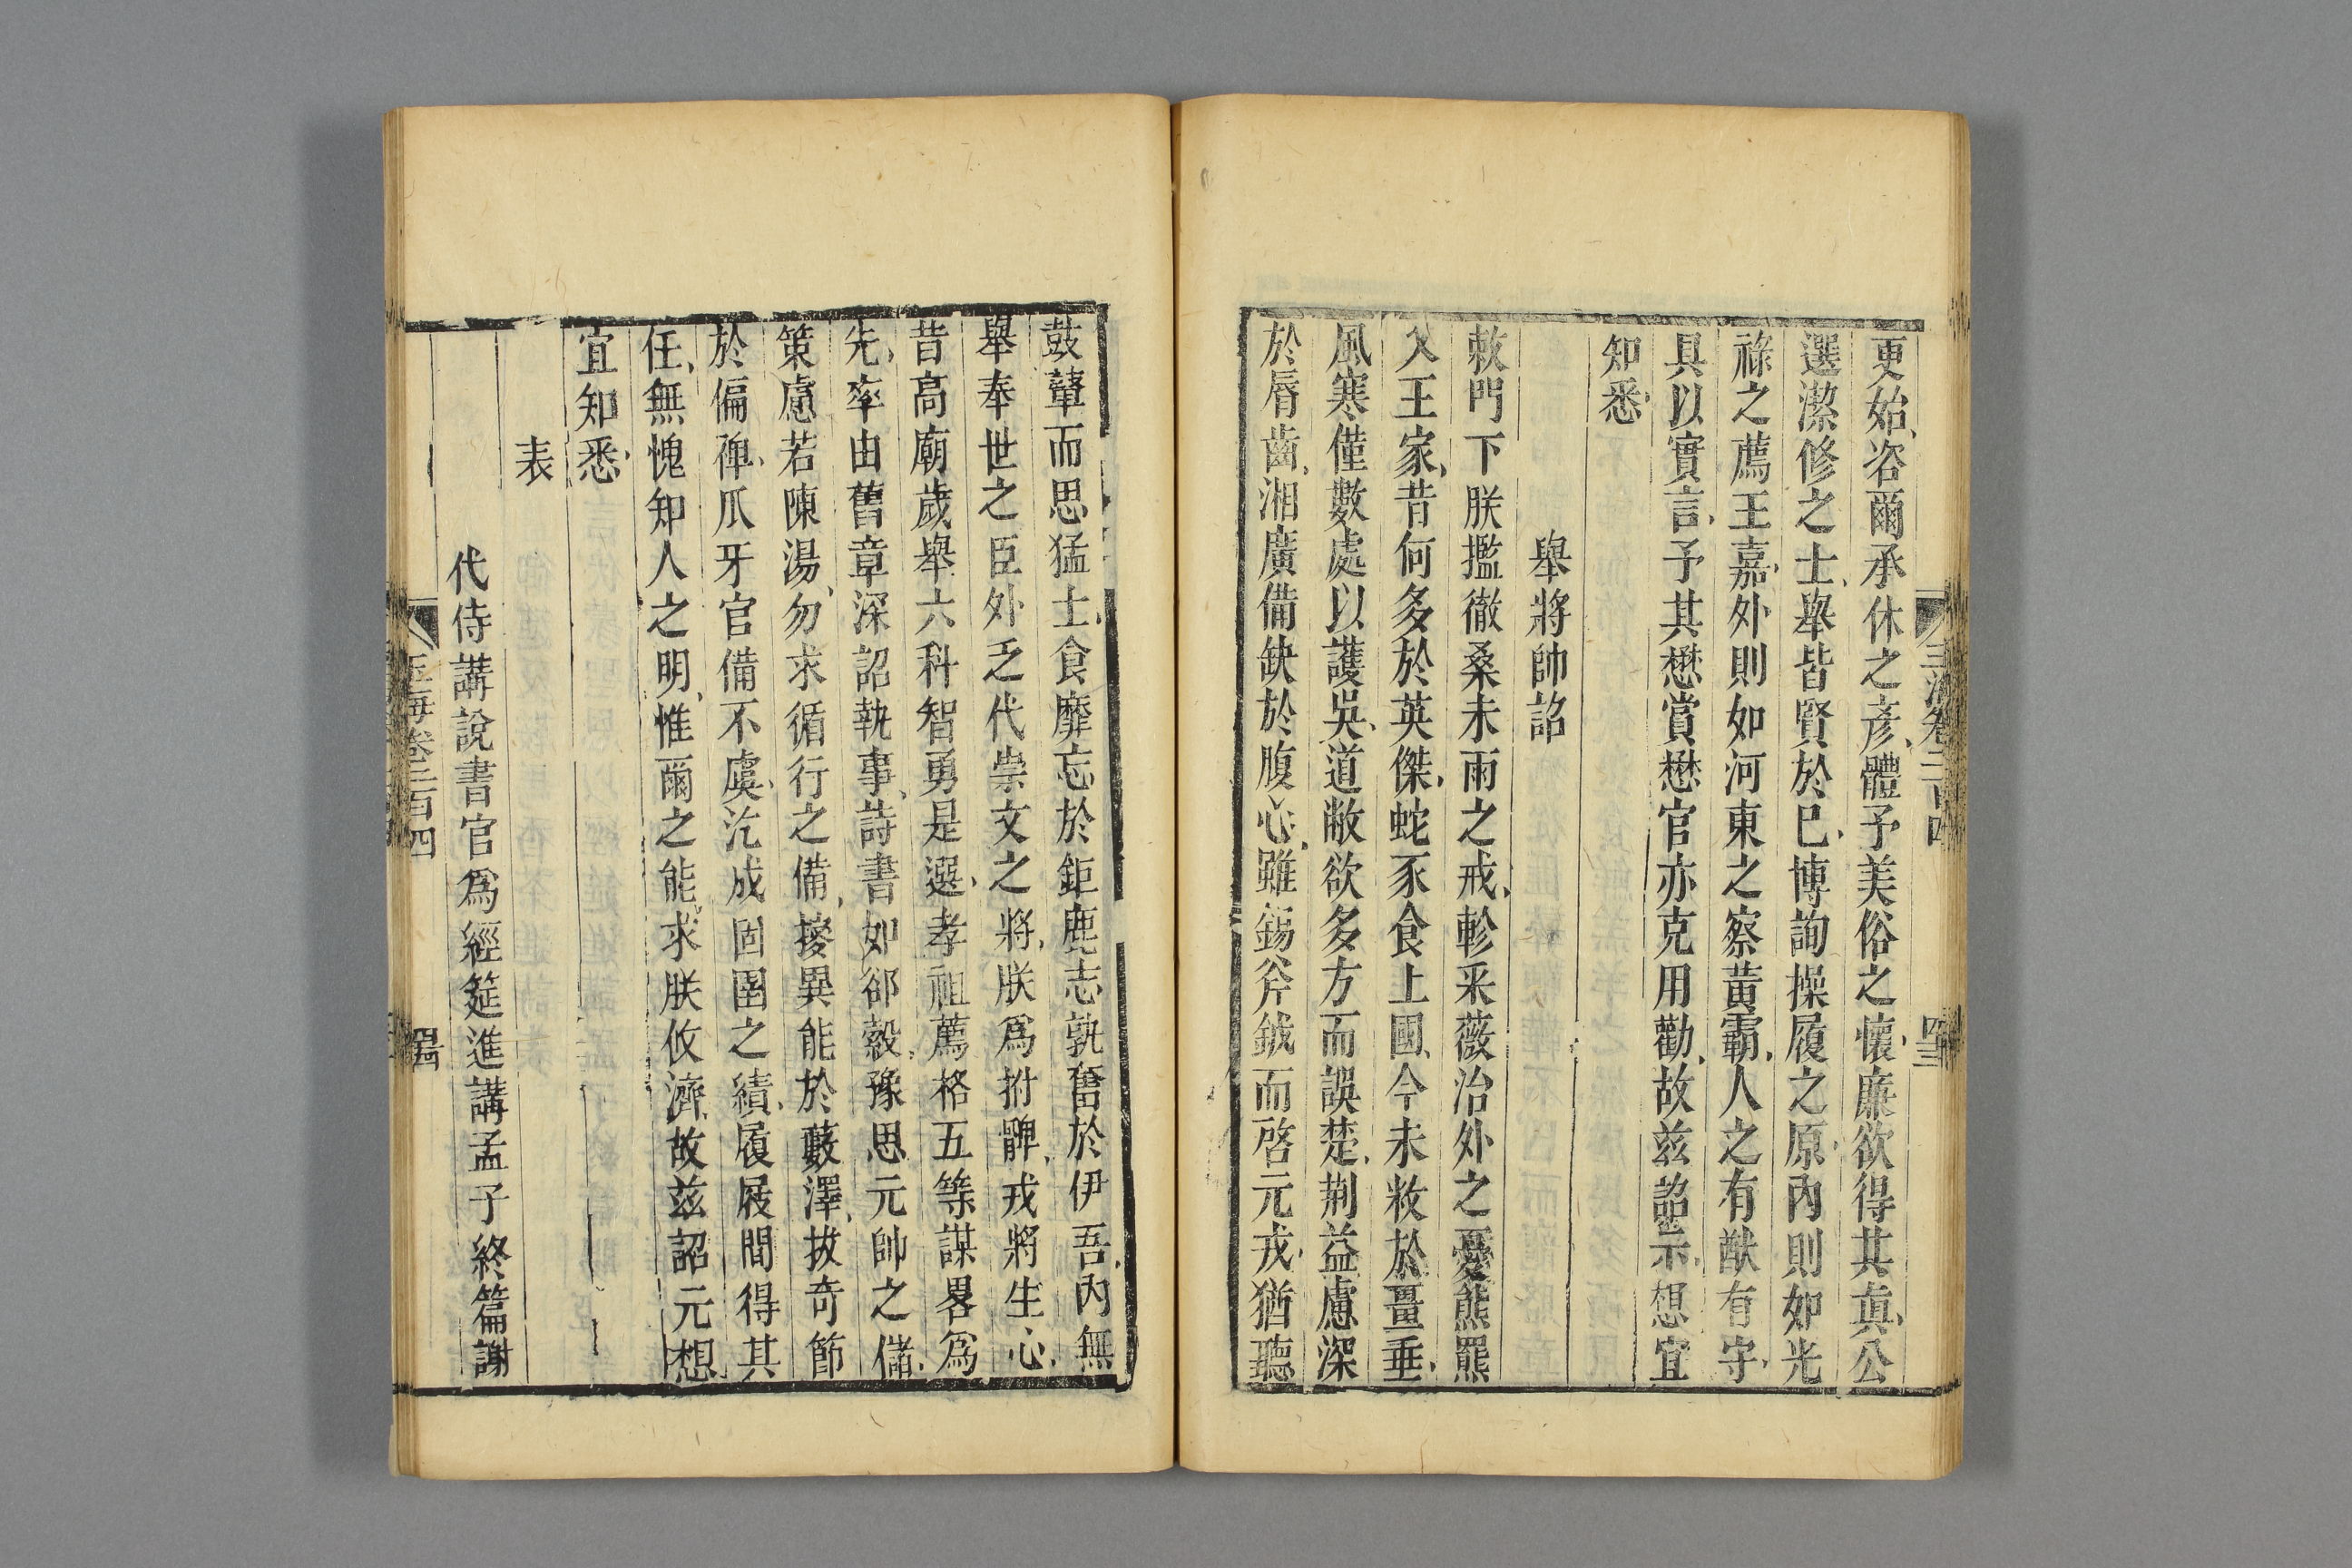 更始咨爾承休之彦體予美俗之懷廉欲得其眞公
選潔修之士舉皆賢於巳博詢操履之原內則如光
祿之薦王嘉外則如河東之察黃霸人之有猷有守
具以實言予其懋賞懋官亦克用勸故茲詔示想宜
知悉
舉將帥詔
敕門下朕擥徹桑未雨之戒軫采薇治外之憂熊羆
乂王家昔何多於英傑蛇豕食上國今未敉於畺垂
風寒僅數處以護吳道敝欲多方而誤楚荆益慮深
於脣齒湘廣備缺於腹心雖錫斧鉞而啓元戎猶聽
鼓鼙而思猛士食靡忘於鉅鹿志孰奮於伊吾內無
舉奉世之臣外乏代崇文之將朕爲拊髀戎將生心
昔高廟歲舉六科智勇是選孝祖薦格五等謀畧爲
先率由舊章深詔執事詩書如郤縠豫思元帥之儲
策慮若陳湯勿求循行之備搜異能於藪澤拔奇節
於偏裨爪牙官備不虞汔成固圉之績履屐間得其
任無愧知人之明惟爾之能求朕攸濟故茲詔元想
宜知悉
表
代侍講說書官爲經筵進講孟子終篇謝
玉海卷二百四
四十四